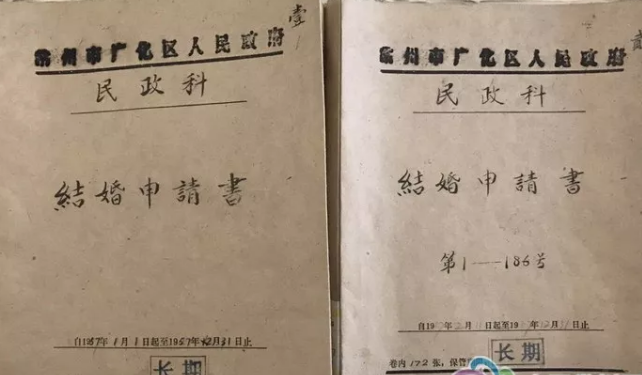 壹
常州市广化区人民政府
民政科
結婚申請書
自1957年1月1日起至1957年12月31日止
长期
常州市广化区人民政府
民政科
結婚申請書
第1——186号
长期
卷内172张，保管